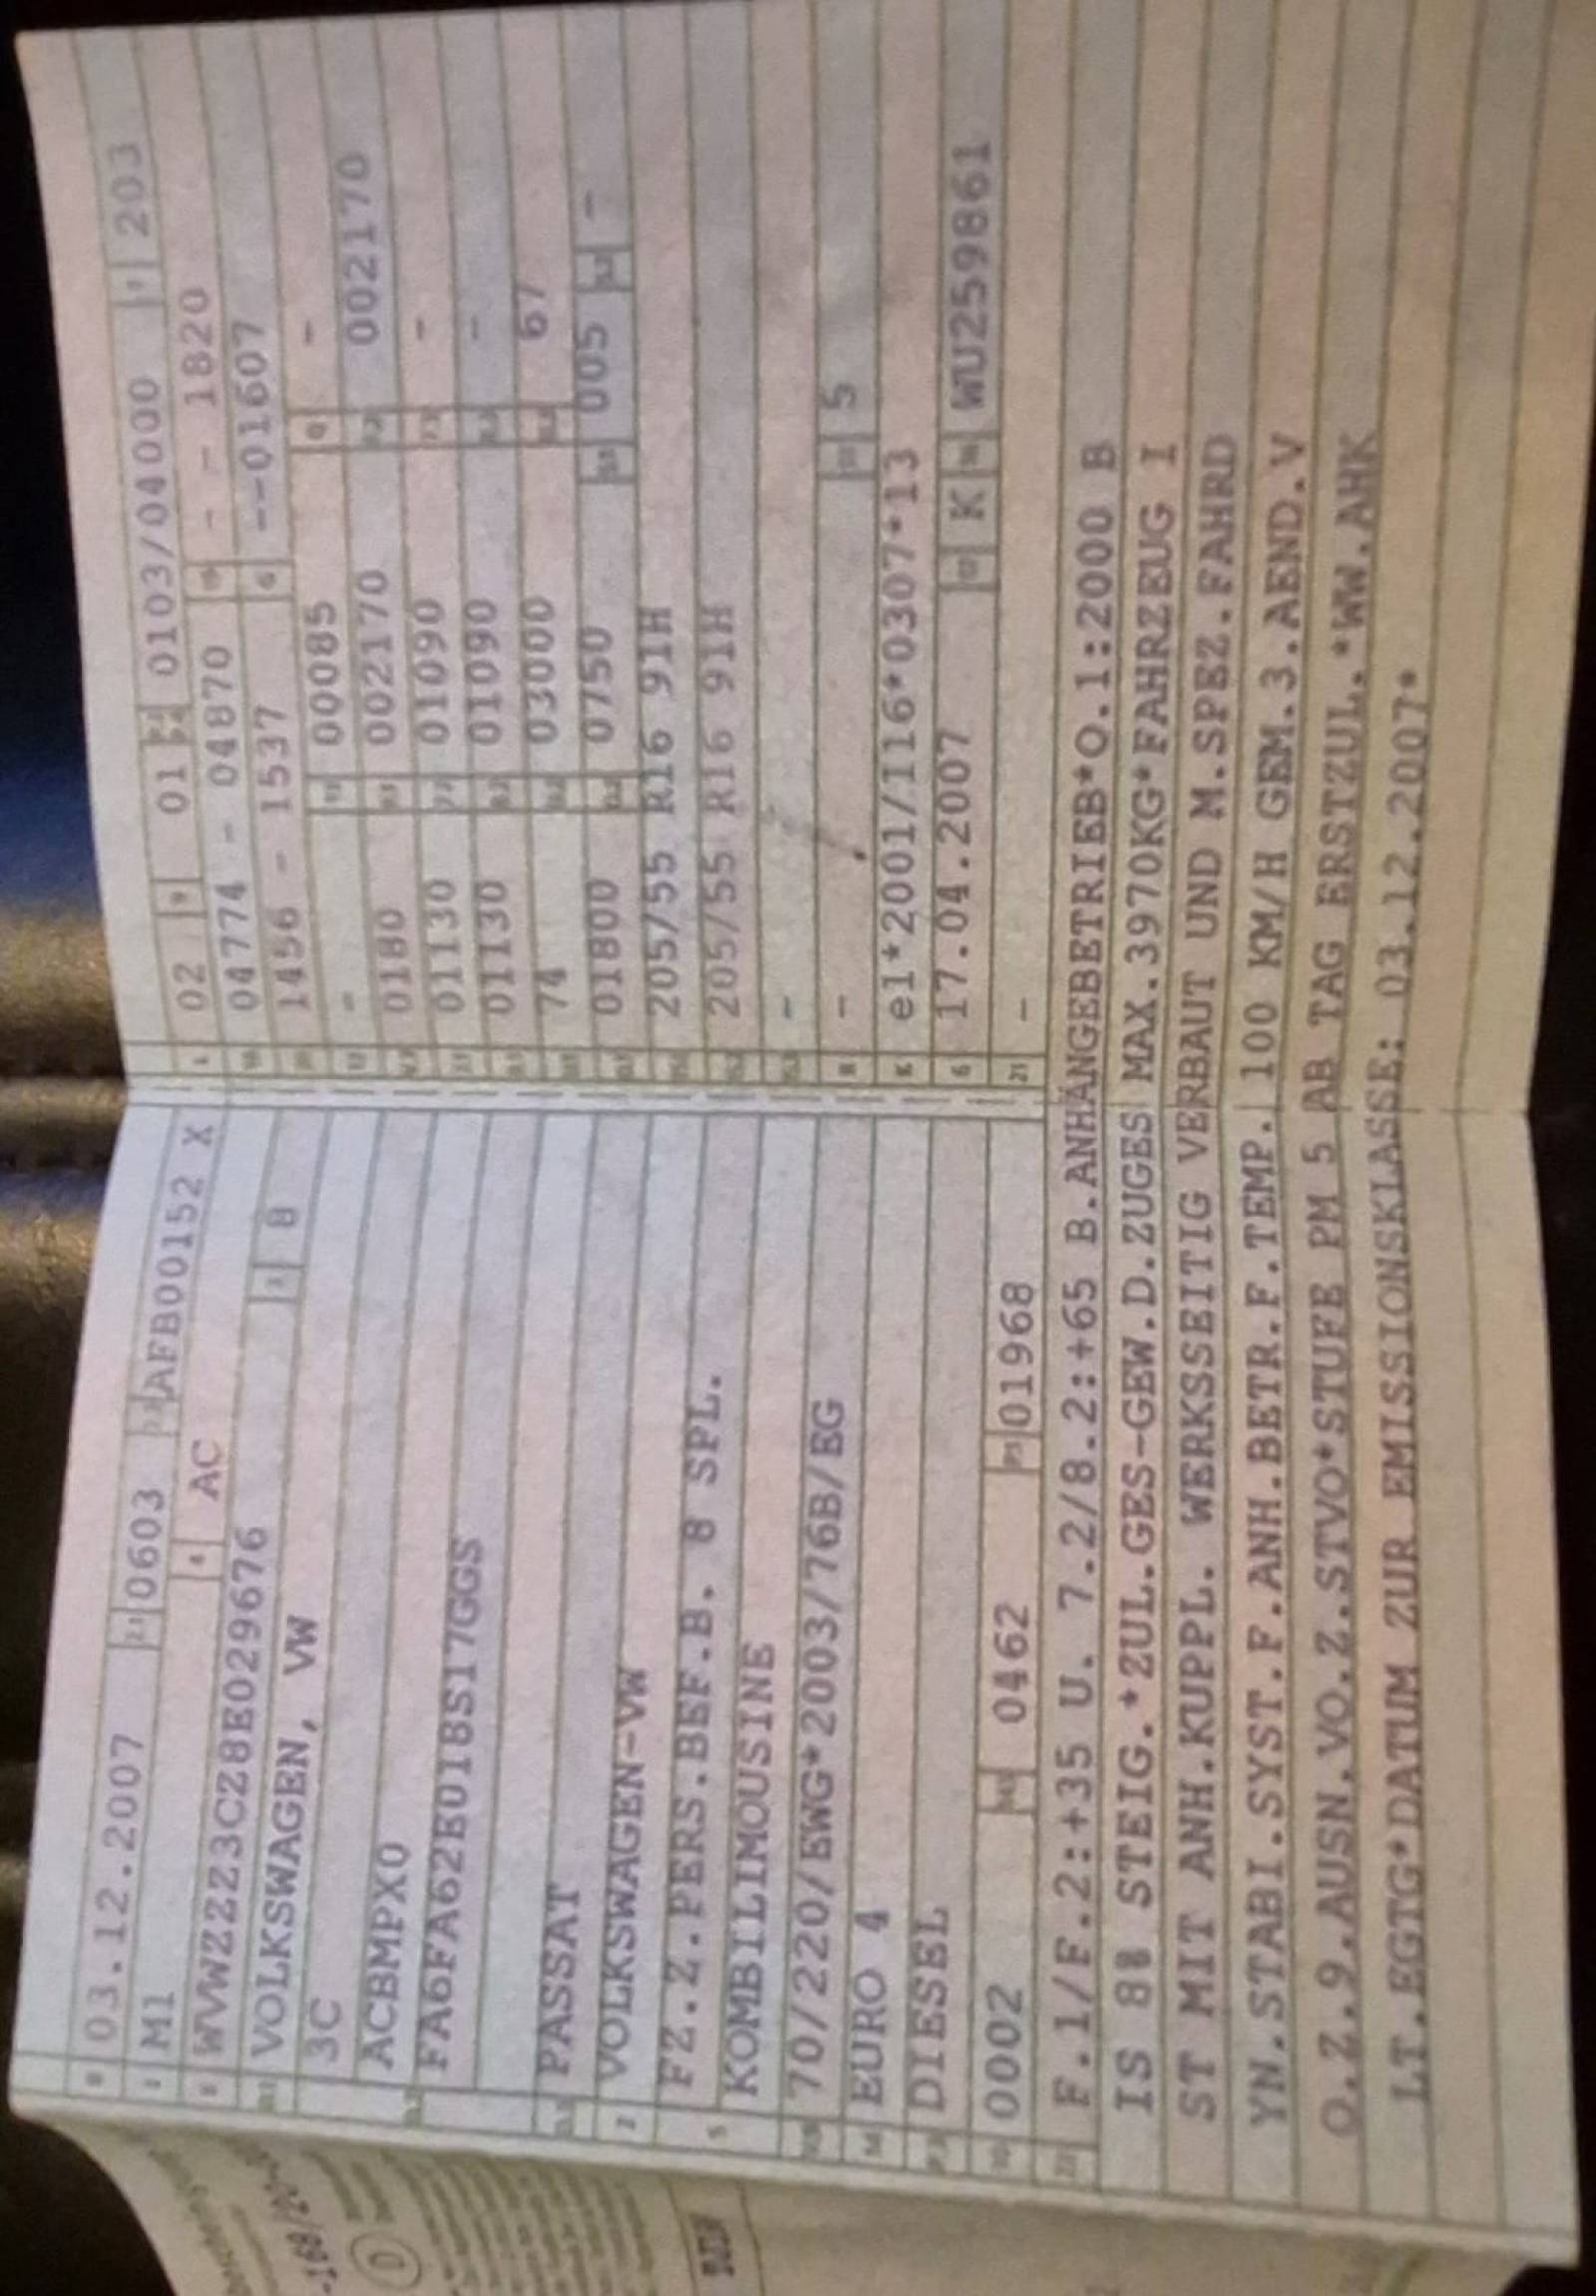 B 03.12.2007 2.1 0603 2.2 AFB00152 X
J M1 4 AC
E WVWZZZ3CZ8E029676 3 8
D.1 VOLKSWAGEN, VW
3C
D.2 ACBMPX0
FA6FA62E018S17GGS
D.3 PASSAT
2 VOLKSWAGEN-VW
5 FZ.Z.PERS.BEF.B. 8 SPL.
KOMBILIMOUSINE
V.9 70/220/EWG*2003/76B/EG
14 EURO 4
P.3 DIESEL
10 0002 14.1 0462 P.1 01968
L 02 9 01 P.2 P.4 0103/04000 T 203
18 04774 - 04870 19 - - 1820
20 1456 - 1537 G --01607
12 - 13 00085 Q -
V.7 0180 F.1 002170 F.2 002170
7.1 01130 7.2 01090 7.3 -
8.1 01130 8.2 01090 8.3 -
U.1 74 U.2 03000 U.3 67
O.1 01800 O.2 0750 S.1 005 S.2 -
15.1 205/55 R16 91H
15.2 205/55 R16 91H
15.3 -
R - 11 5
K e1*2001/116*0307*13
6 17.04.2007 17 K 16 WU259861
21 -
22 F.1/F.2:+35 U. 7.2/8.2:+65 B.ANHÄNGEBETRIEB*O.1:2000 B
IS 8% STEIG.*ZUL.GES-GEW.D.ZUGES MAX.3970KG*FAHRZEUG I
ST MIT ANH.KUPPL. WERKSSEITIG VERBAUT UND M.SPEZ.FAHRD
YN.STABI.SYST.F.ANH.BETR.F.TEMP. 100 KM/H GEM.3.AEND.V
O.Z.9.AUSN.VO.Z.STVO*STUFE PM 5 AB TAG ERSTZUL.*WW.AHK
LT.EGTG*DATUM ZUR EMISSIONSKLASSE: 03.12.2007*